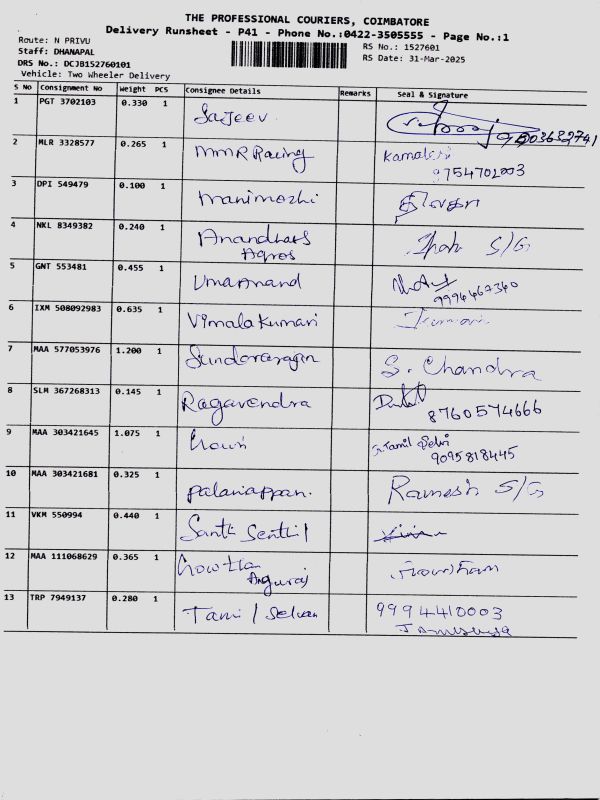 THE PROFESSIONAL COURIERS, COIMBATORE
Delivery Runsheet - P41 - Phone No.:0422-3505555 - Page No.:1
Route: N PRIVU
RS No.: 1527601
Staff: DHANAPAL
RS Date: 31-Mar-2025
DRS No.: DCJB152760101
Vehicle: Two Wheeler Delivery
S No Consignment No Weight PCS Consignee Details Remarks Seal & Signature
1 PGT 3702103 0.330 1 Sajeev
2 MLR 3328577 0.265 1 MMR Racing Kamalesh
9754702003
3 DPI 549479 0.100 1 Manimozhi
4 NKL 8349382 0.240 1 Anandhars S/G
Agros
5 GNT 553481 0.455 1 Umaanand
9994467340
6 IXM 508092983 0.635 1 Vimala Kumari Kumari
7 MAA 577053976 1.200 1 Sundararajan S. Chandra
8 SLM 367268313 0.145 1 Ragavendra
8760574666
9 MAA 303421645 1.075 1 Tamil
9095818445
10 MAA 303421681 0.325 1 Palaniappan. Ramesh S/G
11 VKM 550994 0.440 1 Santh Senthil
12 MAA 111068629 0.365 1 Gowtham
13 TRP 7949137 0.280 1 Tamil Selvan 9994410003